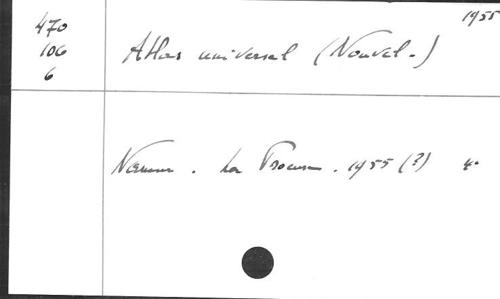 1955
470
106
6
Atlas universel (Nouvel-)
Namur. La Procure. 1955 (?) 4°